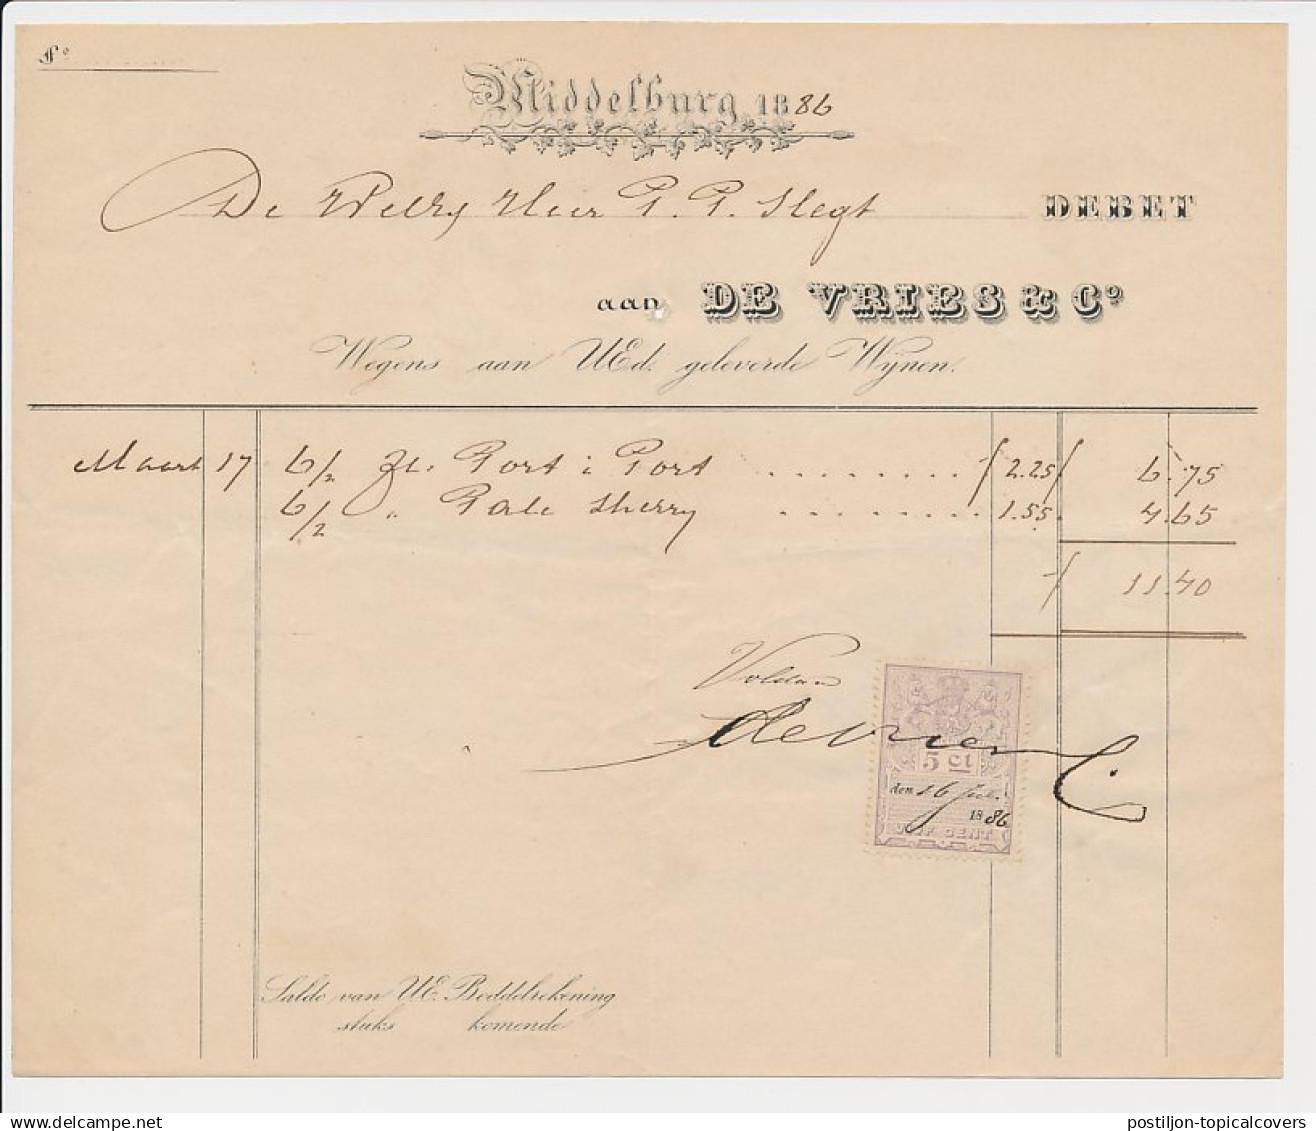 Fo
Middelburg 1886
De WelEg Heer P. P. Slegt DEBET
aan DE VRIES & Co
Wegens aan UEd. geleverde Wijnen.
Maart 17 6/2 Fl. Port à Port ƒ 2.25 ƒ 6.75
6/2 " Pale Sherry 1.55. 4.65
ƒ 11.40
Voldaan
de Vries & C.
5 ct
den 16 Juli
1886
VIJF CENT
Saldo van UE. Boddelrekening
stuks komende
postiljon-topicalcovers